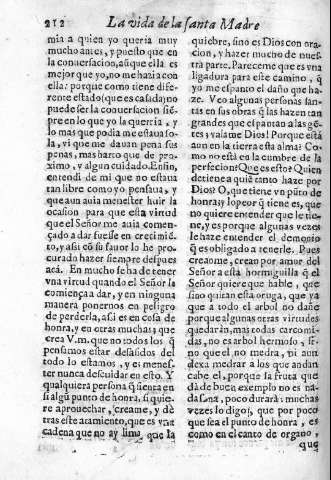 212 La vida de la santa Madre
mia a quien yo queria muy
mucho antes, y puesto que en
la conuersacion, aũque ella es
mejor que yo, no me hazia con
ella: porque como tiene dife-
rente estado (que es casada) no
puede ser la conuersacion siẽ-
pre en lo que yo la querria, y
lo mas que podia me estaua so-
la, vi que me dauan pena sus
penas, mas harto que de pro-
ximo, y algun cuidado. Enfin,
entendi de mi que no estaua
tan libre como yo pensaua, y
que aun auia menester huir la
ocasion para que esta virtud
que el Señor me auia comen-
çado a dar fuesse en crecimiẽ-
to, y assi cõ su fauor lo he pro-
curado hazer siempre despues
acá. En mucho se ha de tener
vna virtud quando el Señor la
comiença a dar, y en ninguna
manera ponernos en peligro
de perderla, assi es en cosa de
honra, y en otras muchas; que
crea V.m. que no todos los q̃
pensamos estar desasidos del
todo lo estamos, y es menes-
ter nunca descuidar en esto. Y
qualquiera persona q̃ sienta en
si algũ punto de honra, si quie-
re aprouechar, creame, y dè
tras este atamiento, que es vna
cadena que no ay lima que la
quiebre, sino es Dios con ora-
cion, y hazer mucho de nues-
tra parte. Pareceme que es vna
ligadura para este camino, q̃
yo me espanto el daño que ha-
ze. Veo algunas personas san-
tas en sus obras q̃ las hazen tan
grandes que espantan a las gẽ-
tes; valame Dios! Porque està
aun en la tierra esta alma? Co-
mo no està en la cumbre de la
perfecion? Que es esto? Quien
detiene a quiẽ tanto haze por
Dios? O, que tiene vn pũto de
honra; y lo peor q̃ tiene es, que
no quiere entender que le tie-
ne, y es porque algunas vezes
le haze entender el demonio
q̃ es obligado a tenerle. Pues
creanme, crean por amor del
Señor a esta hormiguilla q̃ el
Señor quiere que hable, que
sino quitan esta oruga, que ya
que a todo el arbol no dañe
porque algunas otras virtudes
quedarán, mas todas carcomi-
das, no es arbol hermoso, si-
no que el no medra, ni aun
dexa medrar a los que andan
cabe el, porque la fruta que
dà de buen exemplo no es na-
da sana, poco durará: muchas
vezes lo digo, que por poco
que sea el punto de honra, es
como en el canto de organo,
que